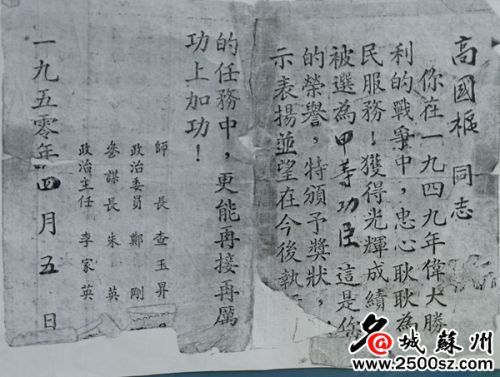 高國樞 同志
你在一九四九年偉大勝
利的戰爭中，忠心耿耿為
民服務！獲得光輝成績
被選為甲等功臣 這是你
的榮譽，特頒予獎狀，
示表揚並望在今後執
的任務中，更能再接再厲
功上加功！
師長 查玉昇
政治委員 鄭剛
參謀長 朱英
政治主任 李家英
一九五零年四月五日
名城蘇州
www.2500sz.com